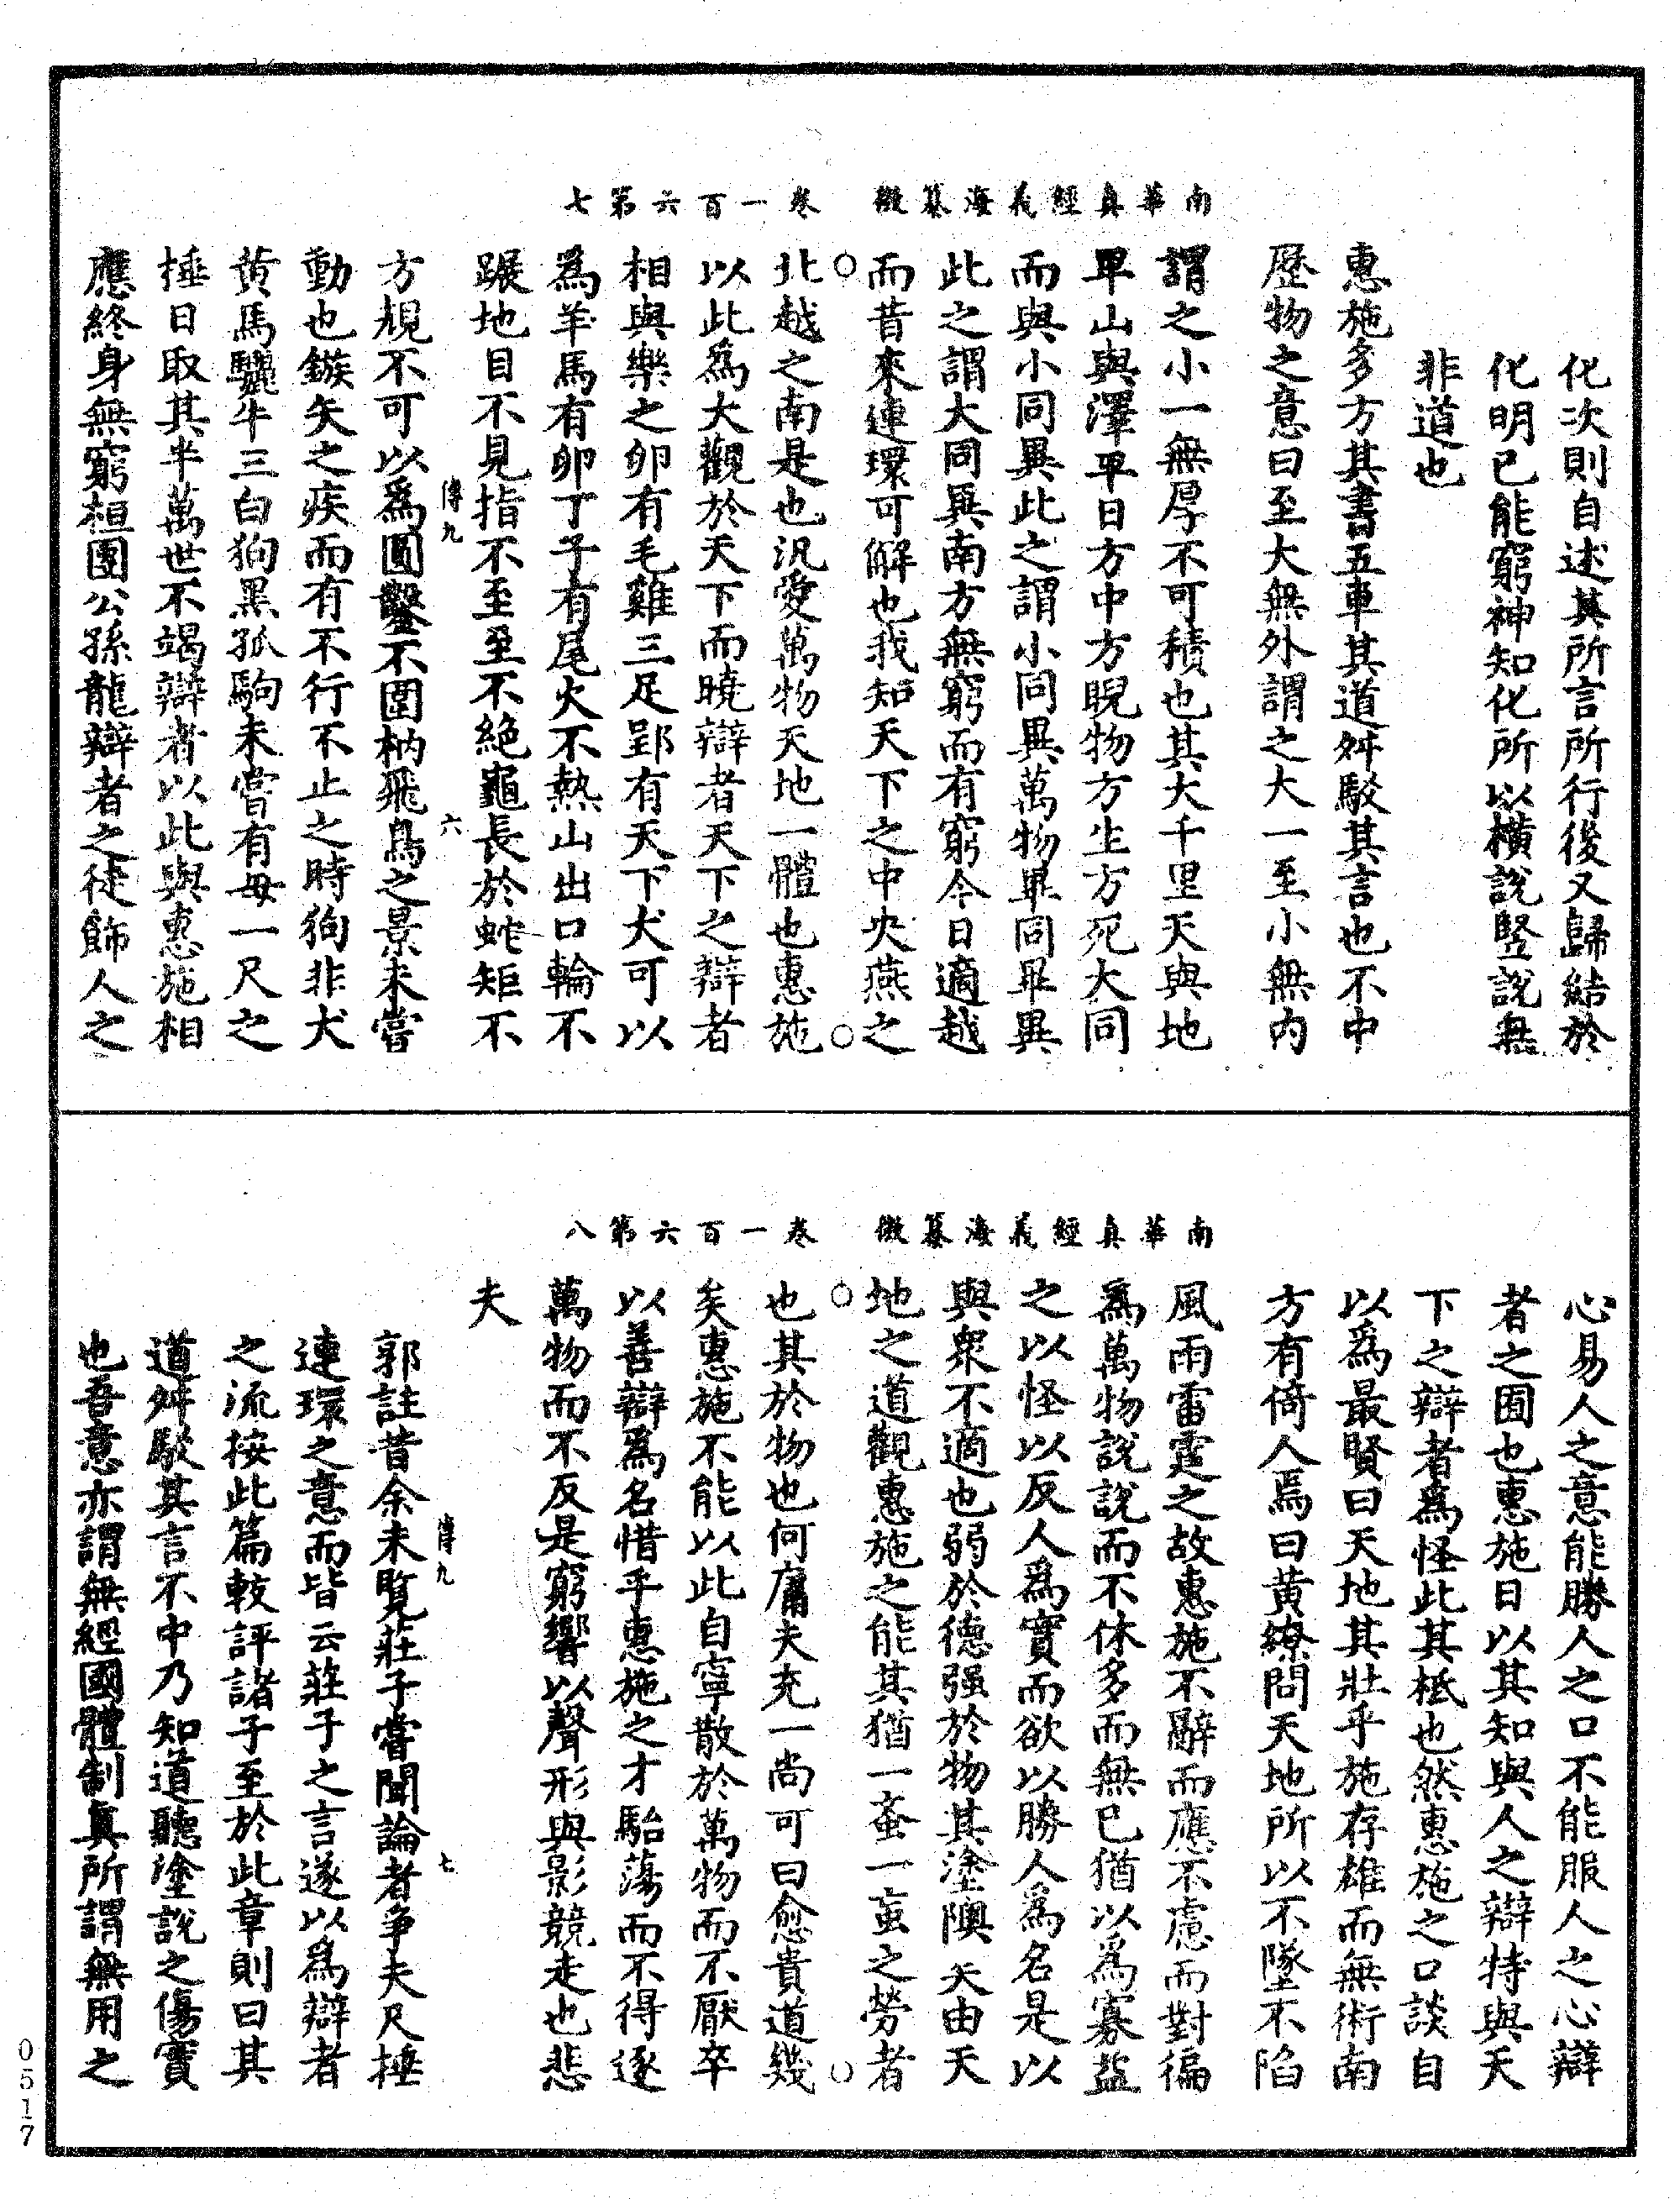 南華真經義海纂微 卷一百六第七
化次則自述其所言所行後又歸結於
化明已能窮神知化所以橫說豎說無
非道也
惠施多方其書五車其道舛駁其言也不中
歷物之意曰至大無外謂之大一至小無內
謂之小一無厚不可積也其大千里天與地
卑山與澤平日方中方睨物方生方死大同
而與小同異此之謂小同異萬物畢同畢異
此之謂大同異南方無窮而有窮今日適越
而昔來連環可解也我知天下之中央燕之
○ ○
北越之南是也汎愛萬物天地一體也惠施
以此為大觀於天下而曉辯者天下之辯者
相與樂之卵有毛雞三足郢有天下犬可以
為羊馬有卵丁子有尾火不熱山出口輪不
蹍地目不見指不至至不絕龜長於蛇矩不
傳九 六
方規不可以為圓鑿不圍枘飛鳥之景未嘗
動也鏃矢之疾而有不行不止之時狗非犬
黃馬驪牛三白狗黑孤駒未嘗有母一尺之
捶日取其半萬世不竭辯者以此與惠施相
應終身無窮桓團公孫龍辯者之徒飾人之
南華真經義海纂微 卷一百六第八
心易人之意能勝人之口不能服人之心辯
者之囿也惠施日以其知與人之辯特與天
下之辯者為怪此其柢也然惠施之口談自
以為最賢曰天地其壯乎施存雄而無術南
方有倚人焉曰黃繚問天地所以不墜不陷
風雨雷霆之故惠施不辭而應不慮而對徧
為萬物說說而不休多而無已猶以為寡益
之以怪以反人為實而欲以勝人為名是以
與眾不適也弱於德强於物其塗隩矣由天
地之道觀惠施之能其猶一蚉一䖟之勞者
○ ○
也其於物也何庸夫充一尚可曰愈貴道幾
矣惠施不能以此自寧散於萬物而不厭卒
以善辯為名惜乎惠施之才駘蕩而不得逐
萬物而不反是窮響以聲形與影競走也悲
夫
傳九 七
郭註昔余未覽莊子嘗聞論者爭夫尺捶
連環之意而皆云莊子之言遂以為辯者
之流按此篇較評諸子至於此章則曰其
道舛駁其言不中乃知道聽塗說之傷實
也吾意亦謂無經國體制真所謂無用之
0517